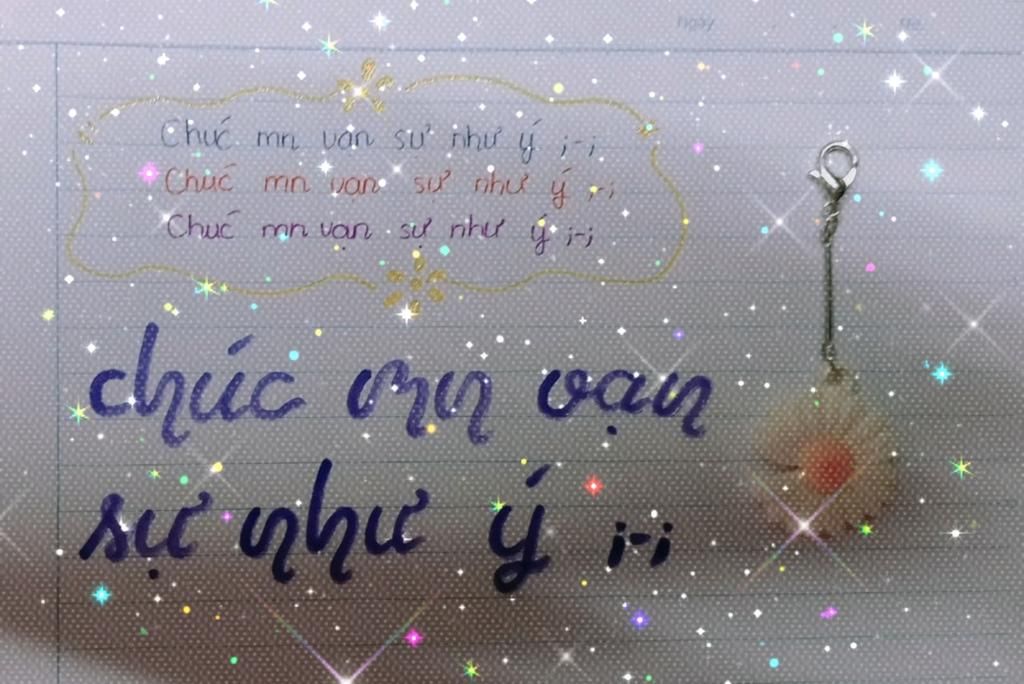 Ngày
Chúc mn vạn sự như ý ;-;
Chúc mn vạn sự như ý ;-;
Chúc mn vạn sự như ý ;-;
chúc mn vạn
sự như ý ;-;